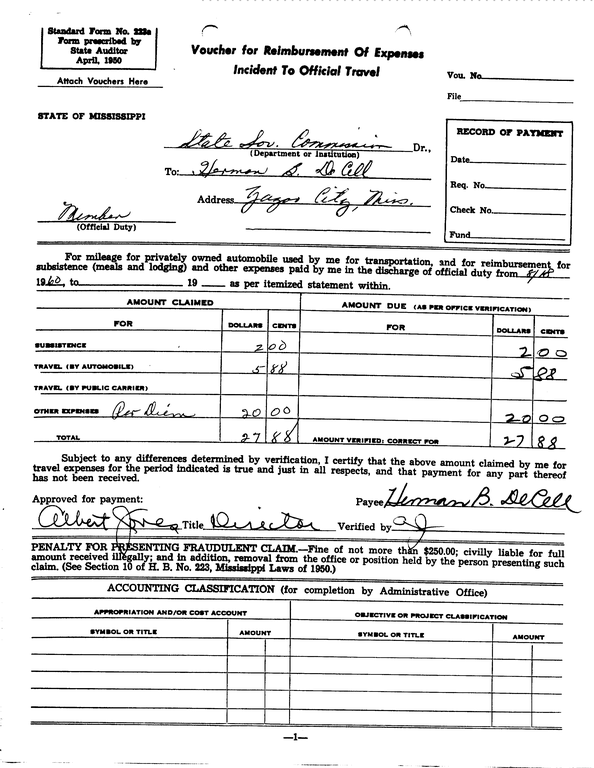 Standard Form No. 223a
Form prescribed by
State Auditor
April, 1950
Attach Vouchers Here
Voucher for Reimbursement Of Expenses
Incident To Official Travel
Vou. No.
File
STATE OF MISSISSIPPI
State Sov. Commission Dr.,
(Department or Institution)
To: Herman B. De Cell
Address Yazoo City, Miss.
Member
(Official Duty)
RECORD OF PAYMENT
Date
Req. No.
Check No.
Fund
For mileage for privately owned automobile used by me for transportation, and for reimbursement for
subsistence (meals and lodging) and other expenses paid by me in the discharge of official duty from 8/18
1960, to 19 as per itemized statement within.
AMOUNT CLAIMED AMOUNT DUE (AS PER OFFICE VERIFICATION)
FOR DOLLARS CENTS FOR DOLLARS CENTS
SUBSISTENCE 2 00 2 00
TRAVEL (BY AUTOMOBILE) 5 88 5 88
TRAVEL (BY PUBLIC CARRIER)
OTHER EXPENSES Per Diem 20 00 20 00
TOTAL 27 88 AMOUNT VERIFIED: CORRECT FOR 27 88
Subject to any differences determined by verification, I certify that the above amount claimed by me for
travel expenses for the period indicated is true and just in all respects, and that payment for any part thereof
has not been received.
Approved for payment: Payee Herman B. DeCell
Albert Jones Title Director Verified by aJ
PENALTY FOR PRESENTING FRAUDULENT CLAIM.—Fine of not more than $250.00; civilly liable for full
amount received illegally; and in addition, removal from the office or position held by the person presenting such
claim. (See Section 10 of H. B. No. 223, Mississippi Laws of 1950.)
ACCOUNTING CLASSIFICATION (for completion by Administrative Office)
APPROPRIATION AND/OR COST ACCOUNT OBJECTIVE OR PROJECT CLASSIFICATION
SYMBOL OR TITLE AMOUNT SYMBOL OR TITLE AMOUNT
—1—